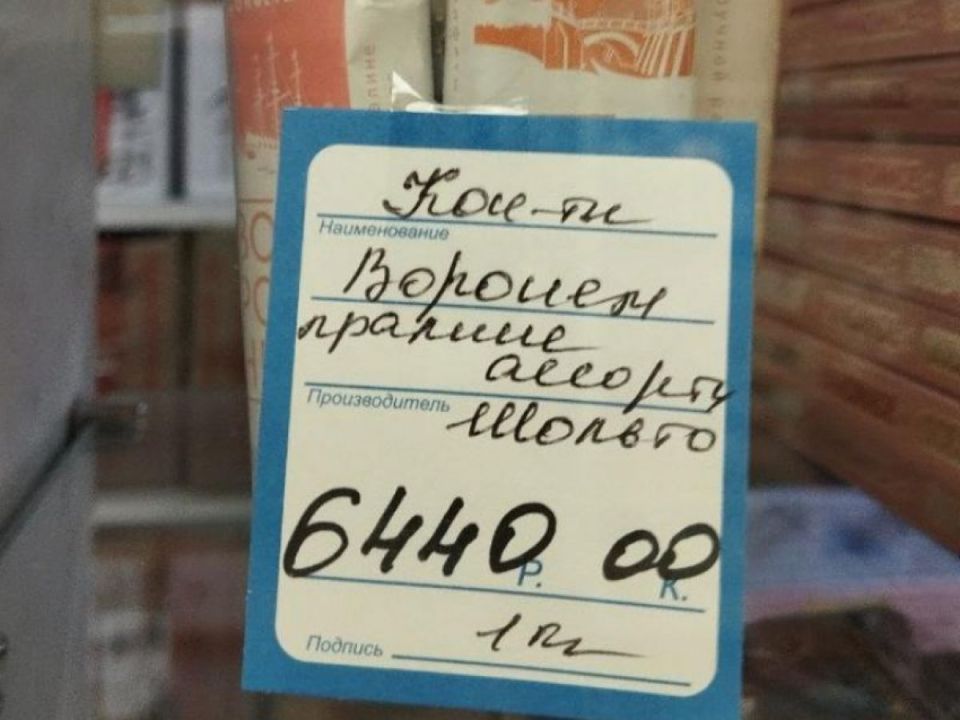 Кон-ты
Наименование
Воронеж
пралине
ассорти
Производитель
Шольто
6440 00
Р. К.
1 кг
Подпись